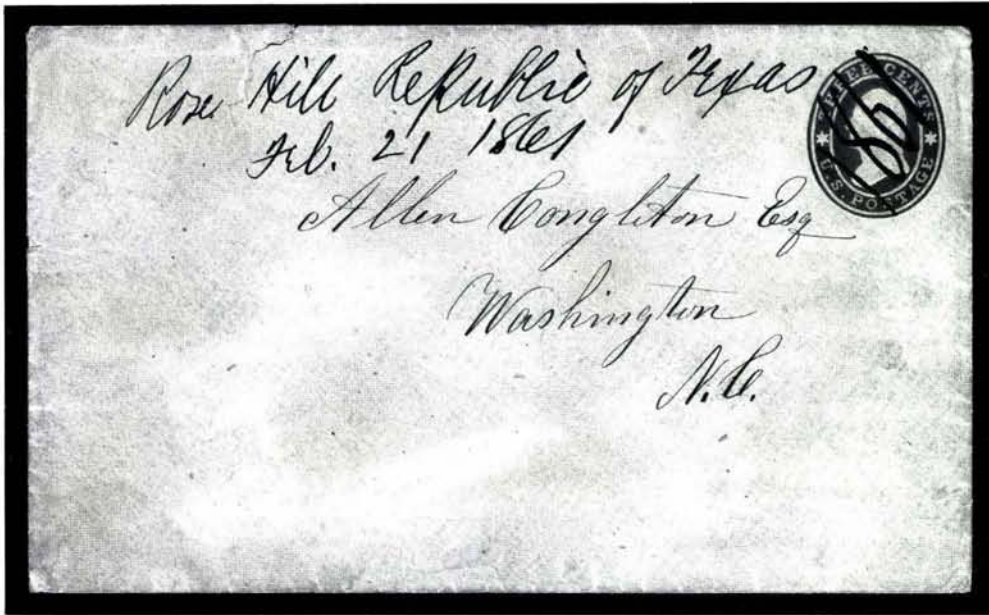 Rose Hill Republic of Texas
Feb. 21 1861
Allen Congleton Esq
Washington
N.C.
THREE CENTS
U.S. POSTAGE